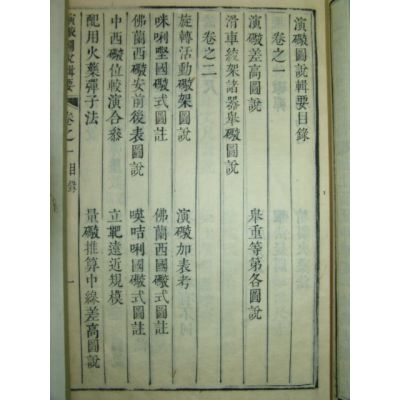 演礮圖說輯要目錄
卷之一
演礮差高圖說
滑車絞架諸器舉礮圖說
舉重等第各圖說
卷之二
旋轉活動礮架圖說
演礮加表考
咪唎國礮式圖註
佛蘭西國礮式圖註
佛蘭西礮安前後表圖說
㗲咭唎國礮式圖註
中西礮位較演合叅
立靶遠近規模
配用火藥彈子法
量礮推算中線差高圖說
演礮圖說輯要
卷之一
目錄
一